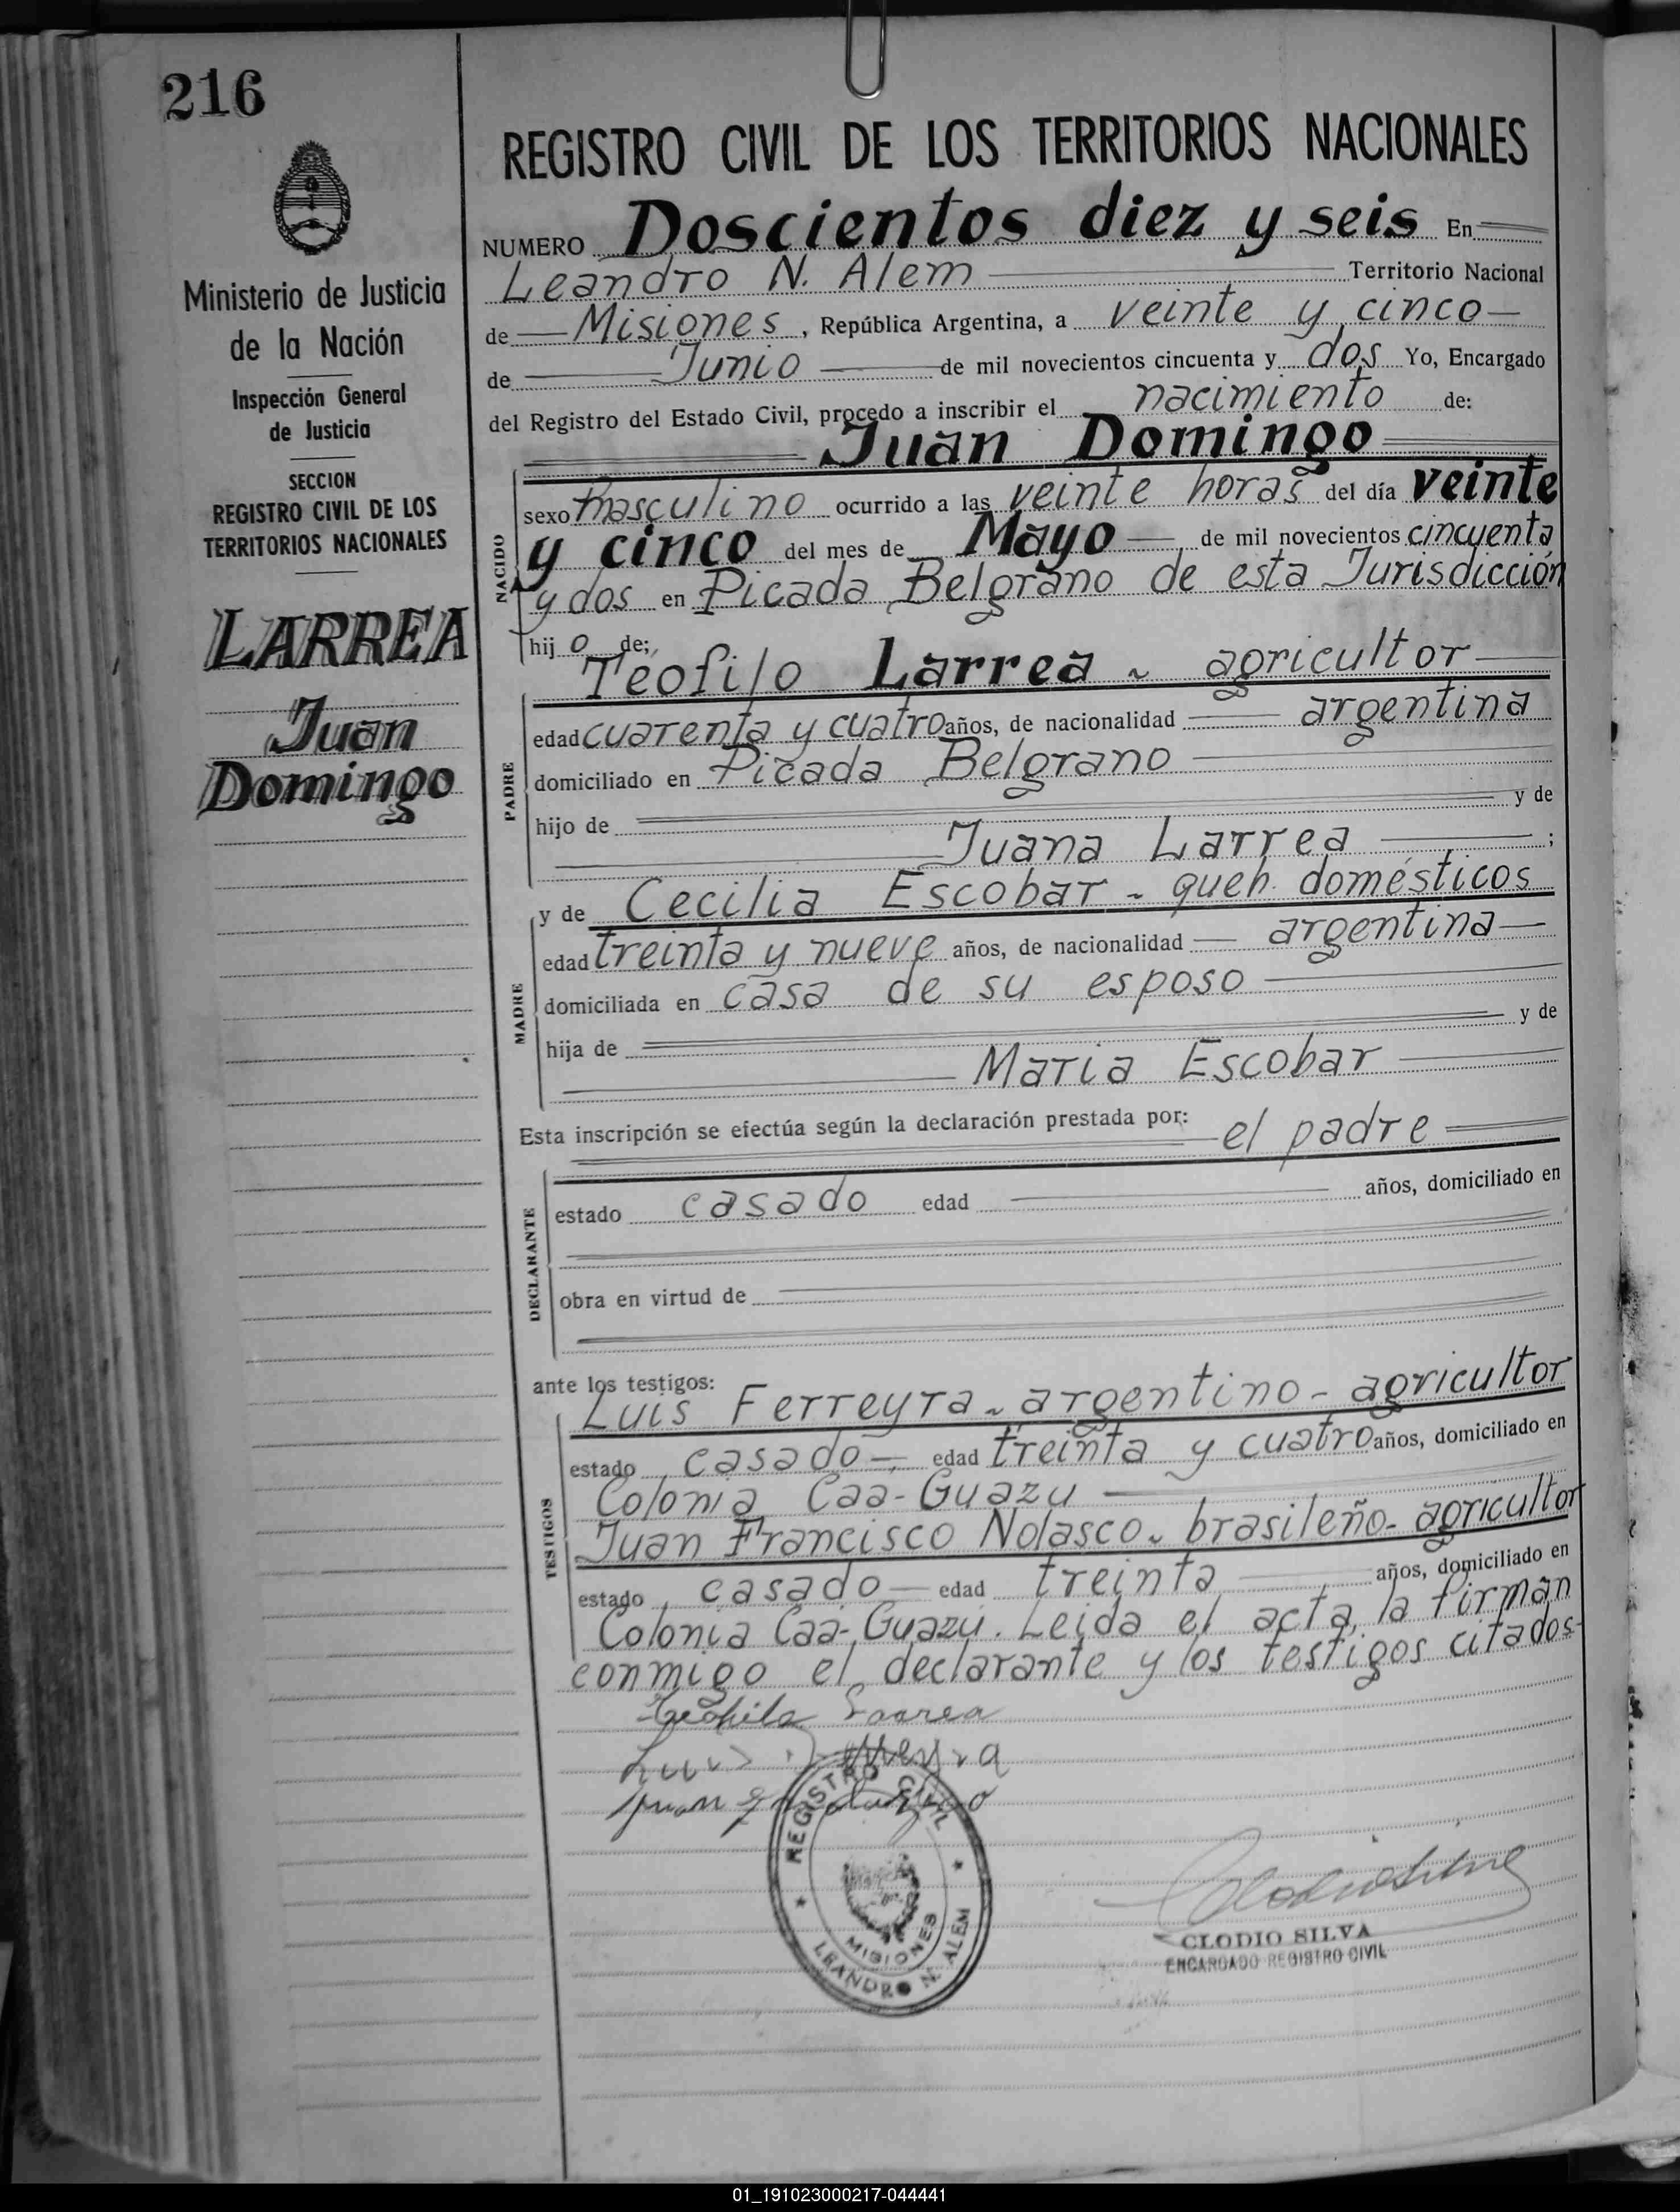 216
Ministerio de Justicia
de la Nación
Inspección General
de Justicia
SECCION
REGISTRO CIVIL DE LOS
TERRITORIOS NACIONALES
LARREA
Juan
Domingo
REGISTRO CIVIL DE LOS TERRITORIOS NACIONALES
NUMERO Doscientos diez y seis En
Leandro N. Alem Territorio Nacional
de Misiones, República Argentina, a veinte y cinco
de Junio de mil novecientos cincuenta y dos Yo, Encargado
del Registro del Estado Civil, procedo a inscribir el nacimiento de:
Juan Domingo
NACIDO
sexo masculino ocurrido a las veinte horas del día veinte
y cinco del mes de Mayo de mil novecientos cincuenta
y dos en Picada Belgrano de esta Jurisdicción
hij o de;
Teofilo Larrea - agricultor
PADRE
edad cuarenta y cuatro años, de nacionalidad argentina
domiciliado en Picada Belgrano
hijo de y de
Juana Larrea ;
y de Cecilia Escobar - queh. domésticos
MADRE
edad treinta y nueve años, de nacionalidad argentina
domiciliada en casa de su esposo
hija de y de
Maria Escobar
Esta inscripción se efectúa según la declaración prestada por: el padre
DECLARANTE
estado casado edad años, domiciliado en
obra en virtud de
ante los testigos:
Luis Ferreyra - argentino - agricultor
TESTIGOS
estado casado - edad treinta y cuatro años, domiciliado en
Colonia Caa-Guazu
Juan Francisco Nolasco - brasileño - agricultor
estado casado edad treinta años, domiciliado en
Colonia Caa-Guazú. Leida el acta, la firman
conmigo el declarante y los testigos citados-
Teofilo Larrea
Luis Ferreyra
Juan
REGISTRO CIVIL
MISIONES
LEANDRO N. ALEM
CLODIO SILVA
ENCARGADO REGISTRO CIVIL
01_191023000217-044441